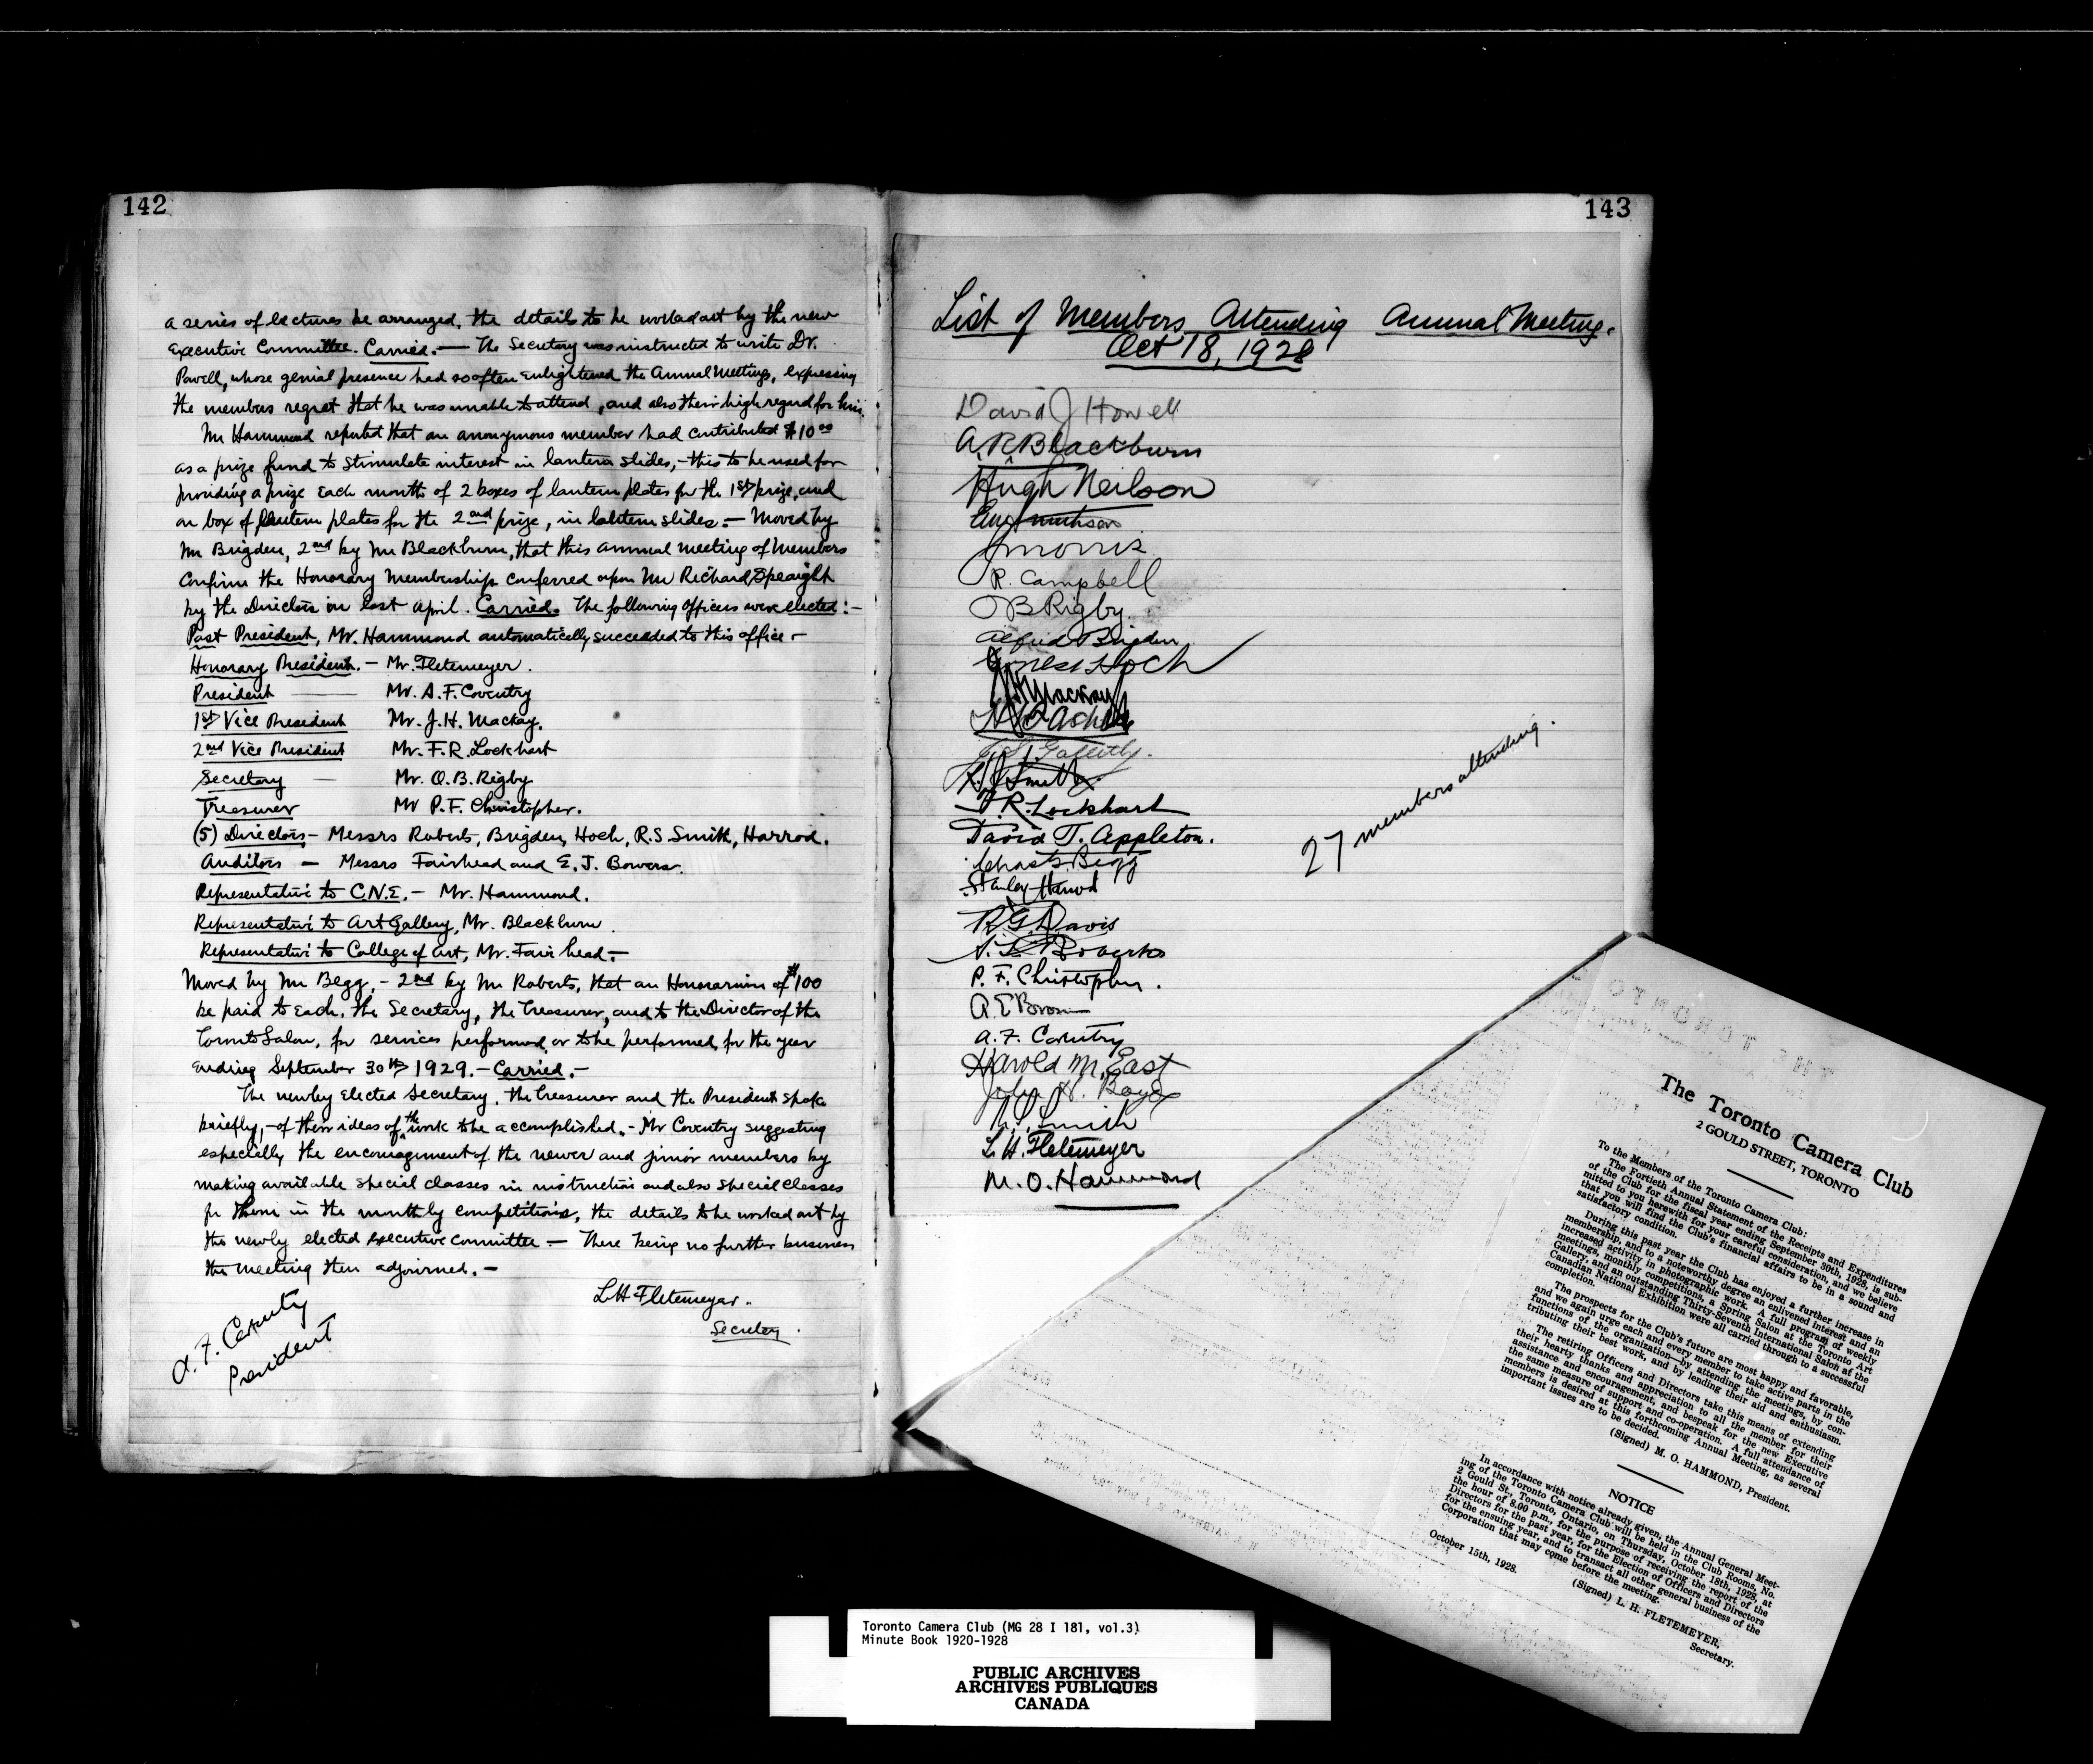 142
a series of lectures be arranged, the details to be worked out by the new
Executive Committee. Carried. — The Secretary was instructed to write Dr.
Powell, whose genial presence had so often enlightened the Annual Meetings, expressing
the members regret that he was unable to attend, and also their high regard for him.
Mr Hammond reported that an anonymous member had contributed $10.00
as a prize fund to stimulate interest in lantern slides, - this to be used for
providing a prize each month of 2 boxes of lantern plates for the 1st prize, and
on box of lantern plates for the 2nd prize, in lantern slides. — Moved by
Mr Brigden, 2nd by Mr Blackburn, that this annual meeting of Members
Confirm the Honorary Membership conferred upon Mr Richard Speaight
by the Directors in last April. Carried. The following officers were elected: —
Past President, Mr. Hammond automatically succeeded to this office —
Honorary President. — Mr. Fletemeyer.
President — Mr. A. F. Coventry
1st Vice President Mr. J. H. Mackay.
2nd Vice President Mr. F. R. Lockhart
Secretary — Mr. O. B. Rigby
Treasurer Mr P. F. Christopher.
(5) Directors — Messrs Roberts, Brigden, Hoch, R. S Smith, Harrod.
Auditors — Messrs Fairhead and E. J. Bowers.
Representative to C.N.E. — Mr. Hammond.
Representative to Art Gallery, Mr. Blackburn.
Representative to College of Art, Mr. Fairhead. —
Moved by Mr Begg, - 2nd by Mr Roberts, that an Honorarium of $100
be paid to Each, the Secretary, the Treasurer, and to the Director of the
Toronto Salon, for services performed, or to be performed, for the year
Ending September 30th 1929. — Carried. —
The newly elected Secretary, the Treasurer and the President spoke
briefly, - of their ideas of the work to be accomplished. - Mr Coventry suggesting
especially the encouragement of the newer and junior members by
making available special classes in instruction and also special classes
for them in the monthly competitions, the details to be worked out by
the newly elected executive committee — There being no further business
the meeting then adjourned. —
L H Fletemeyer.
Secretary.
A. F. Coventry
President
143
List of Members Attending Annual Meeting.
Oct 18, 1928
David J Howell
A. R. Blackburn
Hugh Neilson
J Morris
R. Campbell
O B Rigby
Alfred Brigden
Ernest Hoch
J H Mackay
Gallettly.
Smith
F. R. Lockhart
David T. Appleton.
Chas Begg
Stanley Harrod
R. G. Davis
Roberts
P. F. Christopher.
A E Brown
A. F. Coventry
Harold M. East
John H. Boyd
R. S. Smith
L. H. Fletemeyer
M. O. Hammond
27 members attending.
The Toronto Camera Club
2 GOULD STREET, TORONTO
To the Members of the Toronto Camera Club:
The Fortieth Annual Statement of the Receipts and Expenditures
of the Club for the fiscal year ending September 30th, 1928, is sub-
mitted to you herewith for your careful consideration, and we believe
that you will find the Club's financial affairs to be in a sound and
satisfactory condition.
During this past year the Club has enjoyed a further increase in
membership, and to a noteworthy degree an enlivened interest and an
increased activity in photographic work. A full program of weekly
meetings, monthly competitions, a Spring Salon at the Toronto Art
Gallery, and an outstanding Thirty-Seventh International Salon at the
Canadian National Exhibition were all carried through to a successful
completion.
The prospects for the Club's future are most happy and favorable,
and we again urge each and every member to take active parts in the
functions of the organization—by attending the meetings, by con-
tributing their best work, and by lending their aid and enthusiasm.
The retiring Officers and Directors take this means of extending
their hearty thanks and appreciation to all the member for their
assistance and encouragement, and bespeak for the new Executive
the same measure of support and co-operation. A full attendance of
members is desired at this forthcoming Annual Meeting, as several
important issues are to be decided.
(Signed) M. O. HAMMOND, President.
NOTICE
In accordance with notice already given, the Annual General Meet-
ing of the Toronto Camera Club will be held in the Club Rooms, No.
2 Gould St., Toronto, Ontario, on Thursday, October 18th, 1928, at
the hour of 8.00 p.m., for the purpose of receiving the report of the
Directors for the past year, for the Election of Officers and Directors
for the ensuing year, and to transact all other general business of the
Corporation that may come before the meeting.
(Signed) L. H. FLETEMEYER,
Secretary.
October 15th, 1928.
Toronto Camera Club (MG 28 I 181, vol.3)
Minute Book 1920-1928
PUBLIC ARCHIVES
ARCHIVES PUBLIQUES
CANADA